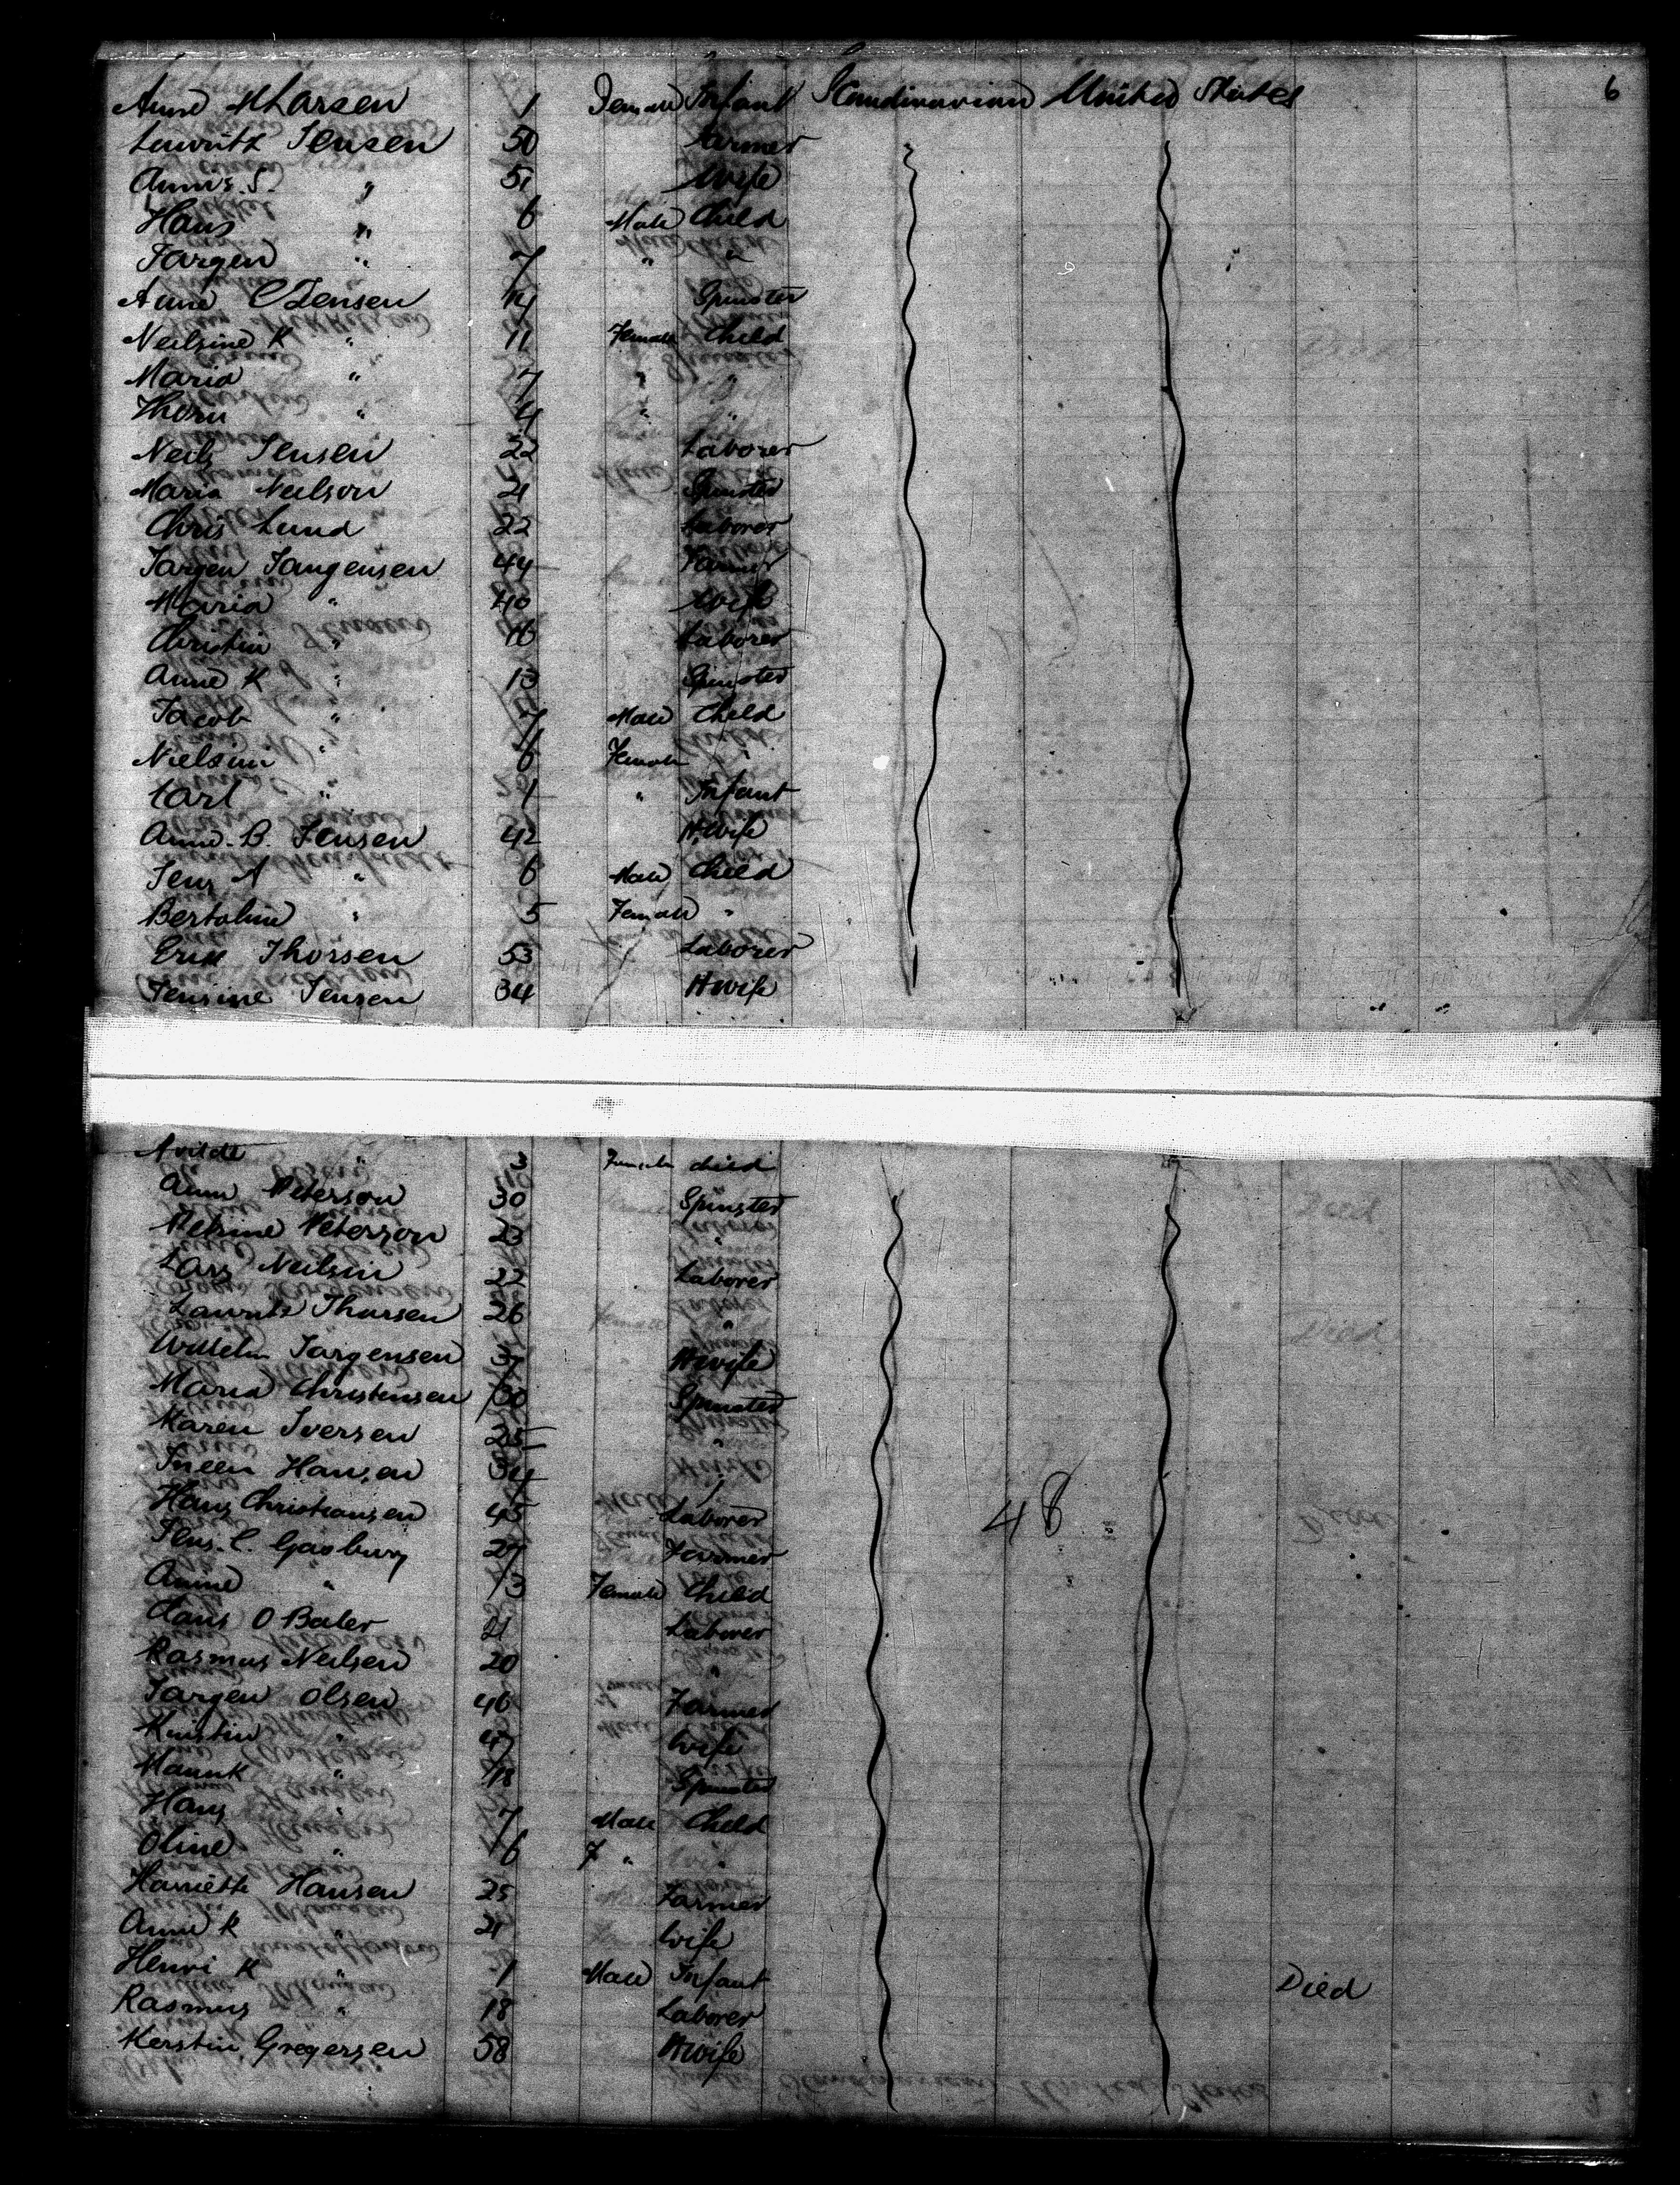 Anne M Larsen 1 Female Infant Scandinavian United States 6
Lauritz Jensen 50 Farmer
Annis. S. " 51 Wife
Hans " 6 Male Child
Jargen " 7 " "
Anne C Jensen 14 Spinster
Neilsine K " 11 Female Child
Maria " 7 " "
Thora " 4 " "
Neils Jensen 22 Laborer
Maria Neilson 21 Spinster
Chris Lund 22 Laborer
Jargen Jangensen 44 Farmer
Maria " 40 Wife
Christin " 16 Laborer
Anne K " 13 Spinster
Jacob " 7 Male Child
Nielsine " 6 Female "
Carl " 1 " Infant
Anne. B. Jensen 42 H.wife
Jens A " 6 Male Child
Bertoline " 5 Female "
Erik Thorsen 53 Laborer
Jensine Jensen 34 H wife
" 3 Female child
Ann Peterson 30 Spinster
Petrine Peterson 23 "
Lars Neilsin 22 Laborer
Lauritz Thursen 26 "
Wilhelm Jargensen 37 H wife
Maria Christensen 30 Spinster
Karen Iversen 25 "
Hansen 34 "
Hans Christiansen 45 Laborer 48
Jens. C. 27 Farmer
Anine " 3 Female Child
Hans O Baler 21 Laborer
Rasmus Neilsen 20 "
Jargen Olsen 46 Farmer
Kirstin " 47 Wife
" 18 Spinster
Hans " 7 Male Child
Oline " 6 F " "
Harriette Hansen 25 Farmer
Anne K " 21 Wife
Henri K " 1 Male Infant Died
Rasmus " 18 Laborer
Kerstin Gregersen 58 H wife